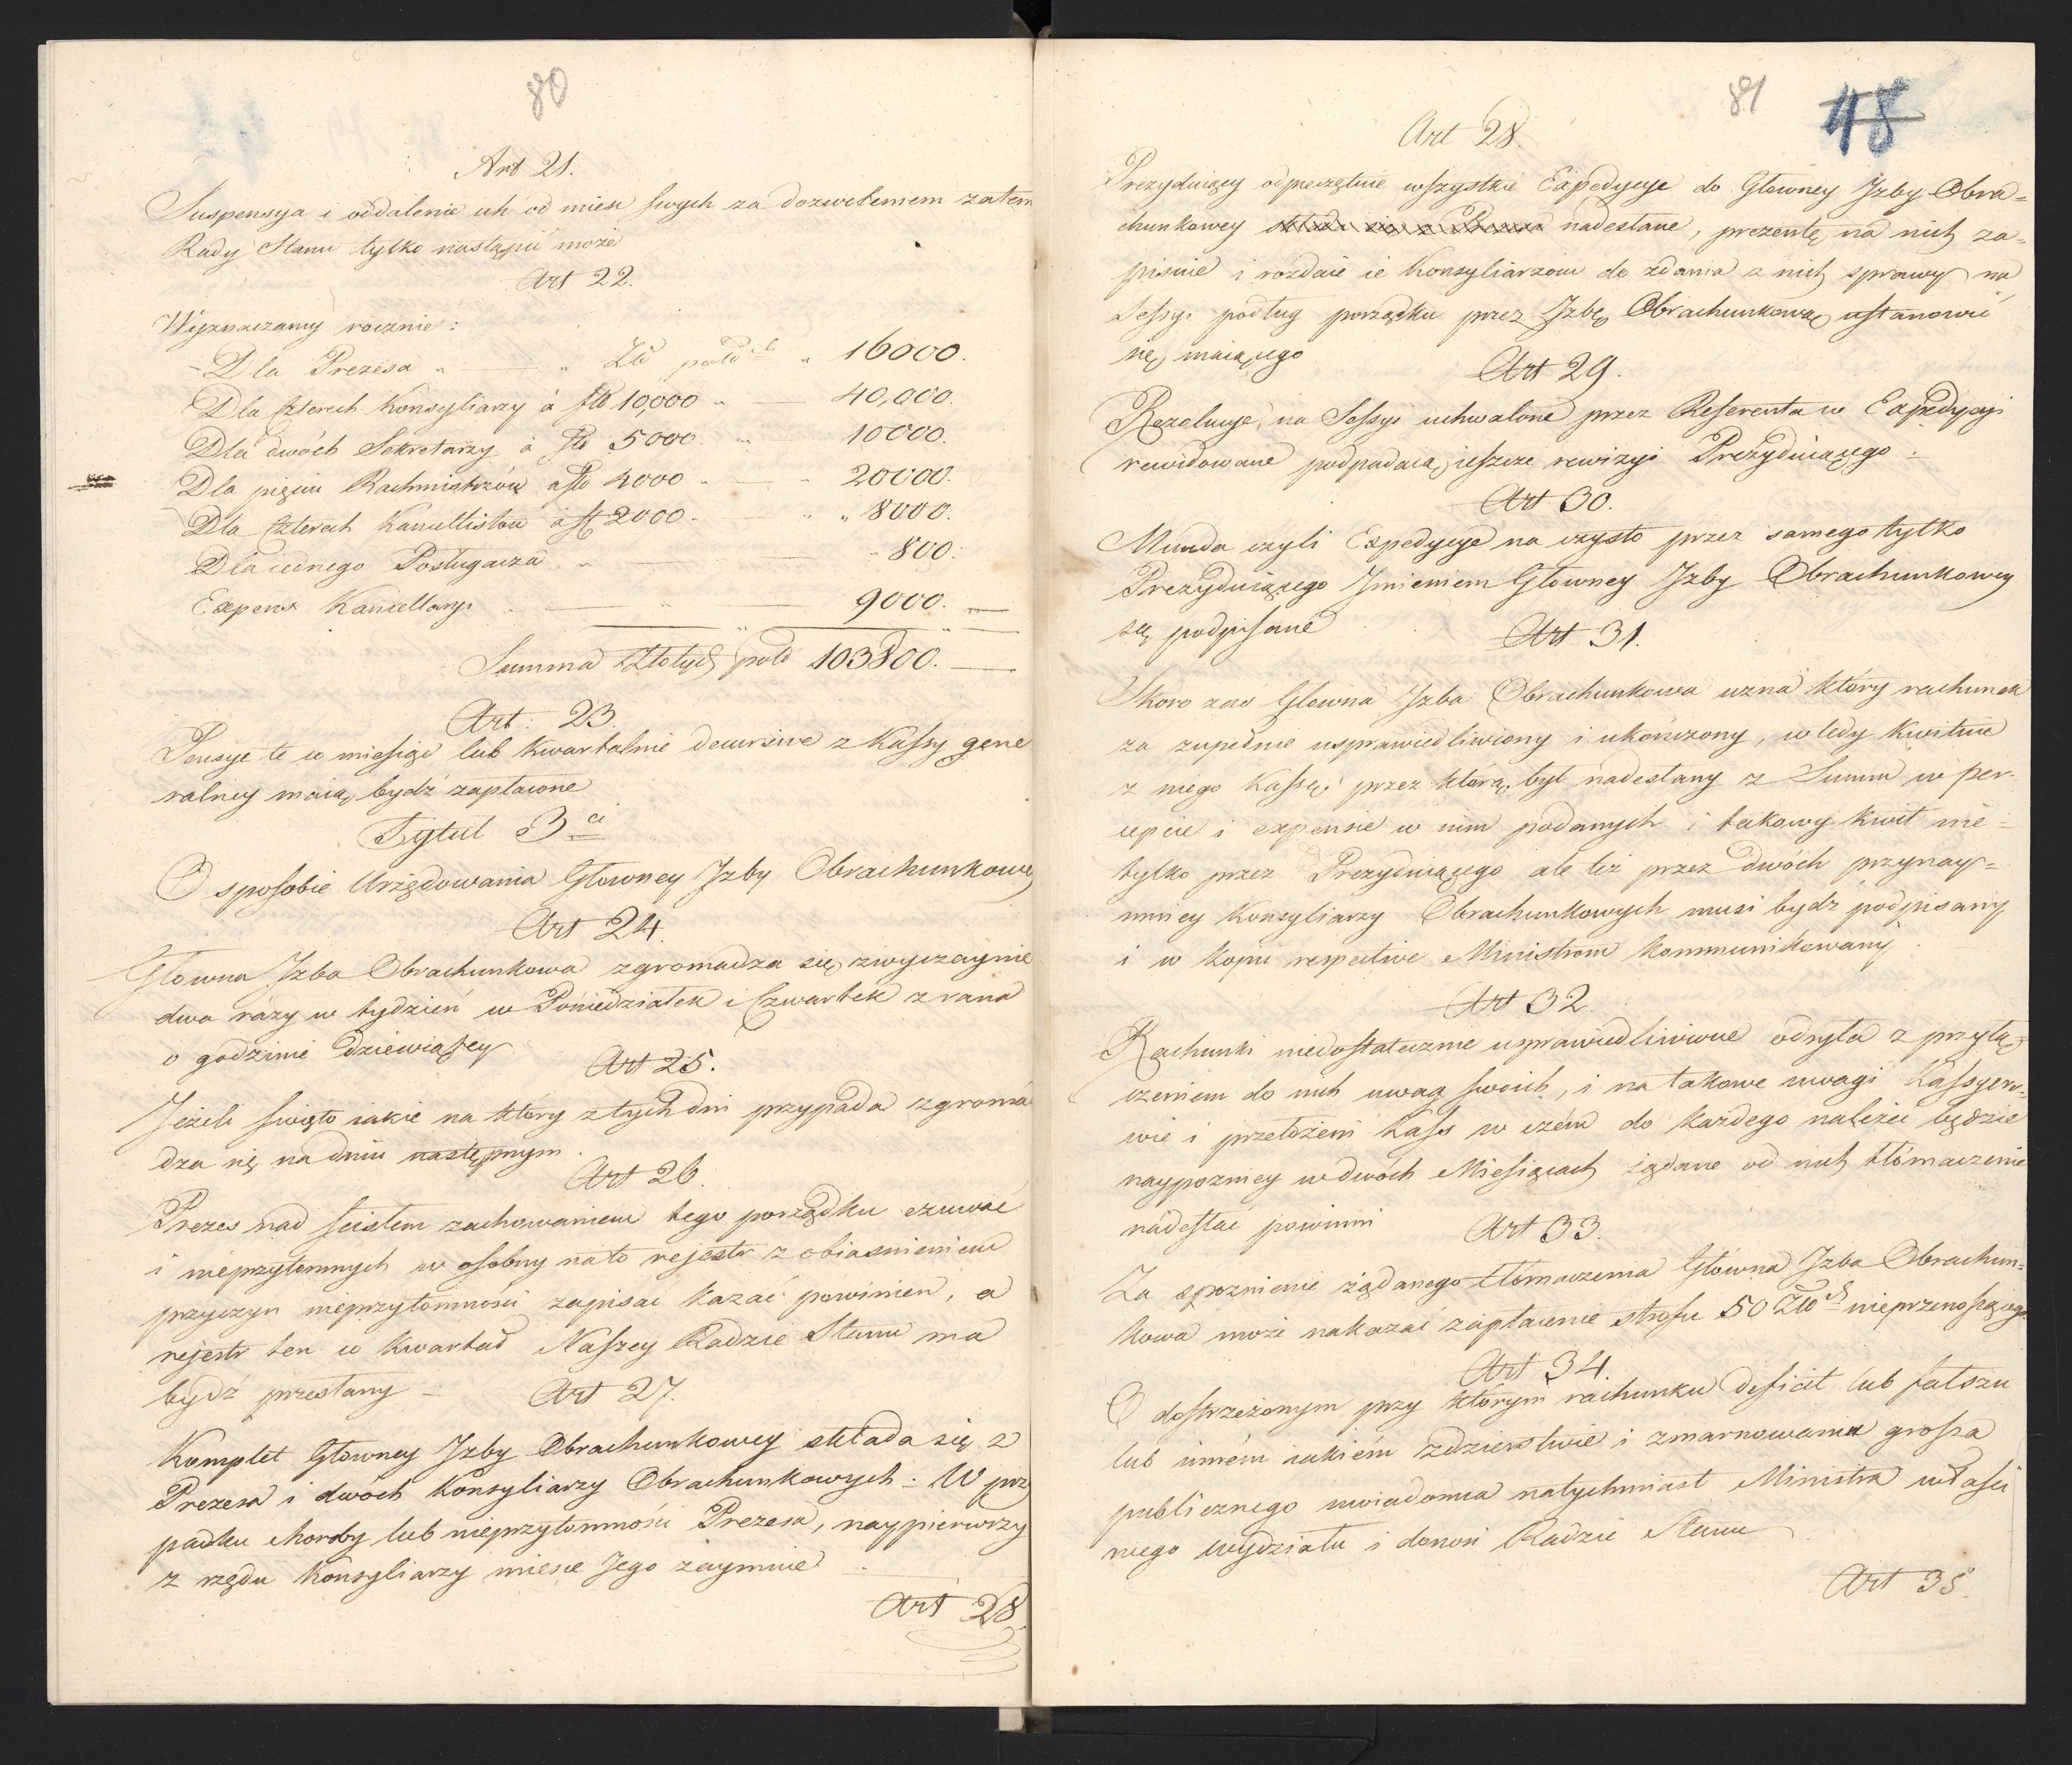 80
Art 21.
Suspensya i oddalenie ich od mieysc swych za dozwoleniem zatem
Rady Stanu tylko nastąpić może
Art 22.
Wyznaczamy rocznie:
- Dla Prezesa " — " Zło pols " 16000.
Dla Czterech Konsyliarzy à fl 10,000 " — 40,000.
Dla dwóch Sekretarzy à fl 5000. " — 10000.
Dla pięciu Rachmistrzów à fl 4000 " — " 20000.
Dla Czterech Kancellistów à fl 2000. — " " 8000.
Dla iednego Posługacza " — " 800.
Expens Kancellaryi " — " — 9000. —
Summa Złotych pols 103800. —
Art: 23.
Pensye te w miesiąc lub Kwartalnie decursive z Kassy gene
ralney maią bydź zapłacone
Tytuł 3ci
O sposobie Urzędowania Głowney Izby Obrachunkowey
Art 24.
Głowna Izba Obrachunkowa zgromadza się zwyczaynie
dwa razy w tydzień w Poniedziałek i Czwartek z rana
o godzinie dziewiątey
Art 25.
Jeżeli święto iakie na który z tych dni przypada zgroma
dza się na dniu następnym.
Art 26.
Prezes nad scisłem zachowaniem tego porządku czuwać
i nieprzytomnych w osobny na to rejestr z obiasnieniem
przyczyn nieprzytomności zapisać kazać powinien, a
rejestr ten w Kwartał Naszey Radzie Stanu ma
bydź przesłany —
Art 27.
Komplet Głowney Izby Obrachunkowey składa się z
Prezesa i dwóch Konsyliarzy Obrachunkowych: W przy
padku choroby lub nieprzytomności Prezesa, naypierwszy
z rzędu Konsyliarzy mieysce Jego zaymuie
Art 28
81
48
Art 28.
Prezyduiący odpieczętuie wszystkie Expedycye do Głowney Izby Obra=
chunkowey składa się z Prezesa nadesłane, prezentę na nich za=
pisuie i rozdaie ie Konsyliarzom do zdania z nich sprawy na
Sessyi podług porządku przez Izbę Obrachunkową ustanowić
się maiącego
Art 29.
Rezolucye na Sessyi uchwalone przez Referenta w Expedycyi
rewidowane podpadaią ieszcze rewizyi Prezyduiącego.
Art 30.
Munda czyli Expedycye na czysto przez samego tylko
Prezyduiącego Imieniem Głowney Izby Obrachunkowey
są podpisane
Art 31.
Skoro zaś Głowna Izba Obrachunkowa uzna który rachunek
za zupełnie usprawiedliwiony i ukończony, wtedy Kwituie
z niego Kassę przez którą był nadesłany z Summ w per-
cepcie i expensie w nim podanych i takowy kwit nie=
tylko przez Prezyduiącego ale też przez dwóch przynay=
mniey Konsyliarzy Obrachunkowych musi bydź podpisany
i w kopii respective Ministrom kommunikowany.
Art 32.
Rachunki niedostatecznie usprawiedliwione odsyła z przyłą=
czeniem do nich uwag swoich, i na takowe uwagi Kassyero=
wie i przełożeni Kass w czém do każdego należeć będzie
naypozniey w dwóch Miesiącach żądane od nich tłómaczenie
nadesłać powinni
Art 33.
Za spoznienie żądanego tłómaczenia Główna Izba Obrachun=
kowa może nakazać zapłacenie strofu 50 Złch nieprzenoszącego
Art 34.
O dostrzeżonym przy którym rachunku deficit lub fałszu
lub inném iakiém zdzierstwie i zmarnowaniu grosza
publicznego uwiadomia natychmiast Ministra właści
wego wydziału i donosi Radzie Stanu
Art 35.